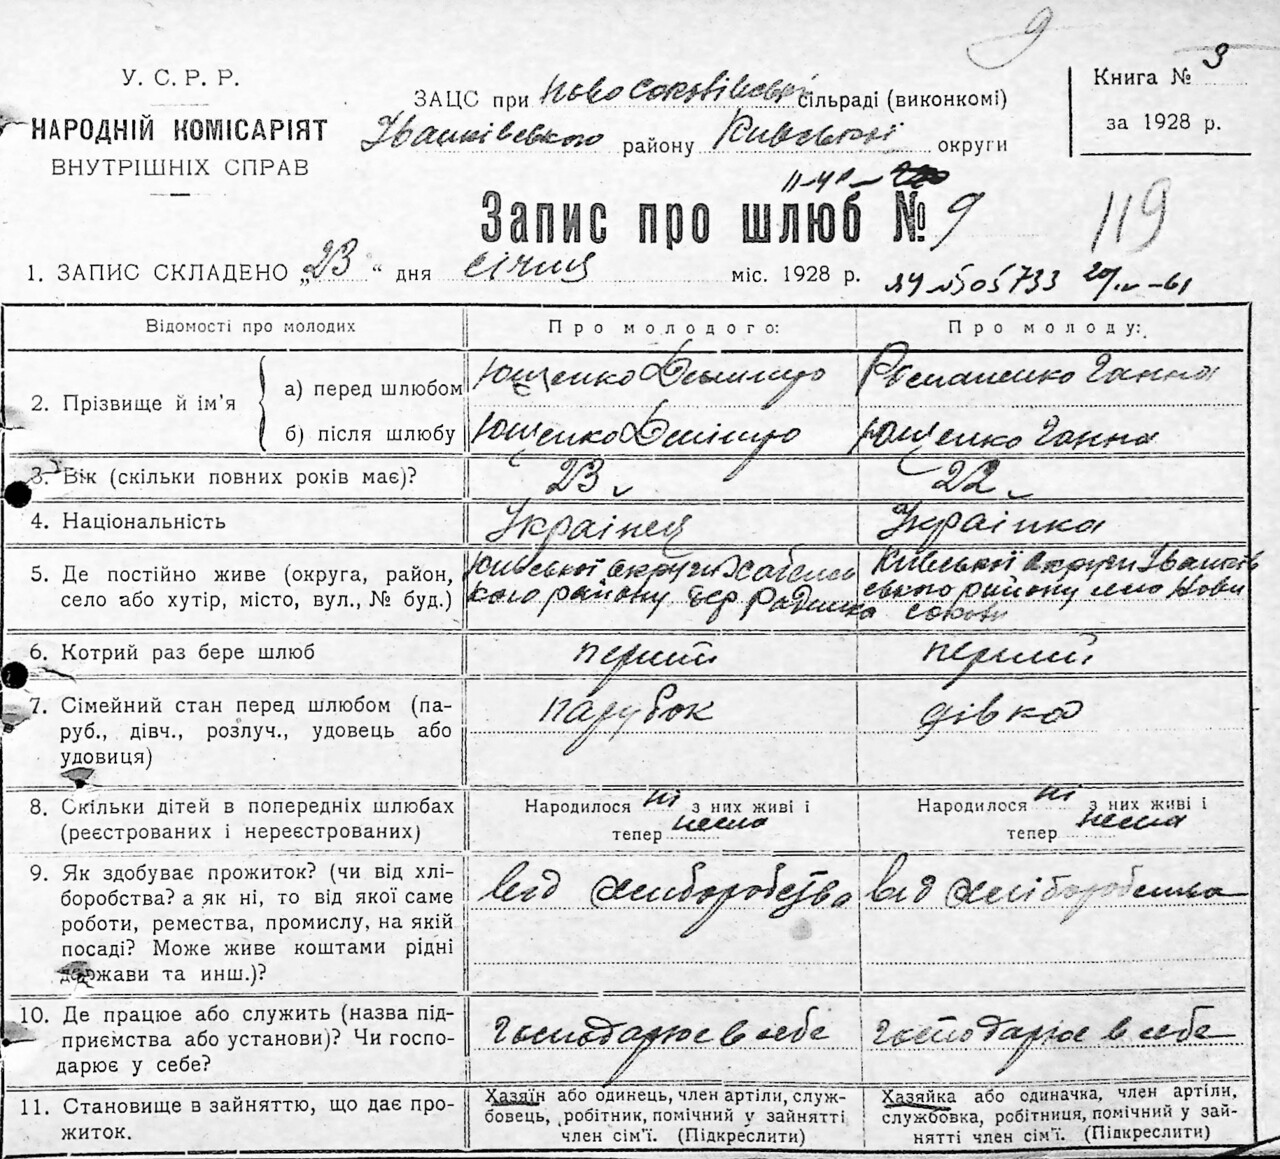 9
У. С. Р. Р.
НАРОДНІЙ КОМІСАРІЯТ
ВНУТРІШНІХ СПРАВ
ЗАЦС при Новосоколівській сільраді (виконкомі)
Іванківського району Київської округи
Книга № 3
за 1928 р.
Запис про шлюб № 9
119
1. ЗАПИС СКЛАДЕНО „23“ дня січня міс. 1928 р.
505733
Відомості про молодих
Про молодого:
Про молоду:
2. Прізвище й ім’я
а) перед шлюбом
Ющенко Дмитро
Романенко Ганна
б) після шлюбу
Ющенко Дмітро
Ющенко Ганна
3. Вік (скільки повних років має)?
23
22
4. Національність
Українец
Українка
5. Де постійно живе (округа, район,
село або хутір, місто, вул., № буд.)
Київської округи Хабенсь
кого району дер Радинка
Київської округи Іванків
ського району село Нови
Соколи
6. Котрий раз бере шлюб
перший
перший
7. Сімейний стан перед шлюбом (па-
руб., дівч., розлуч., удовець або
удовиця)
парубок
дівка
8. Скільки дітей в попередніх шлюбах
(реєстрованих і нереєстрованих)
Народилося ні з них живі і
тепер нема
Народилося ні з них живі і
тепер нема
9. Як здобуває прожиток? (чи від хлі-
боробства? а як ні, то від якої саме
роботи, ремества, промислу, на якій
посаді? Може живе коштами рідні
держави та инш.)?
від хліборобства
від хліборобства
10. Де працює або служить (назва під-
приємства або установи)? Чи госпо-
дарює у себе?
Господарює в себе
Господарює в себе
11. Становище в зайняттю, що дає про-
житок.
Хазяїн або одинець, член артілі, служ-
бовець, робітник, помічний у зайнятті
член сім’ї. (Підкреслити)
Хазяйка або одиначка, член артіли,
службовка, робітниця, помічний у зай-
нятті член сім’ї. (Підкреслити)